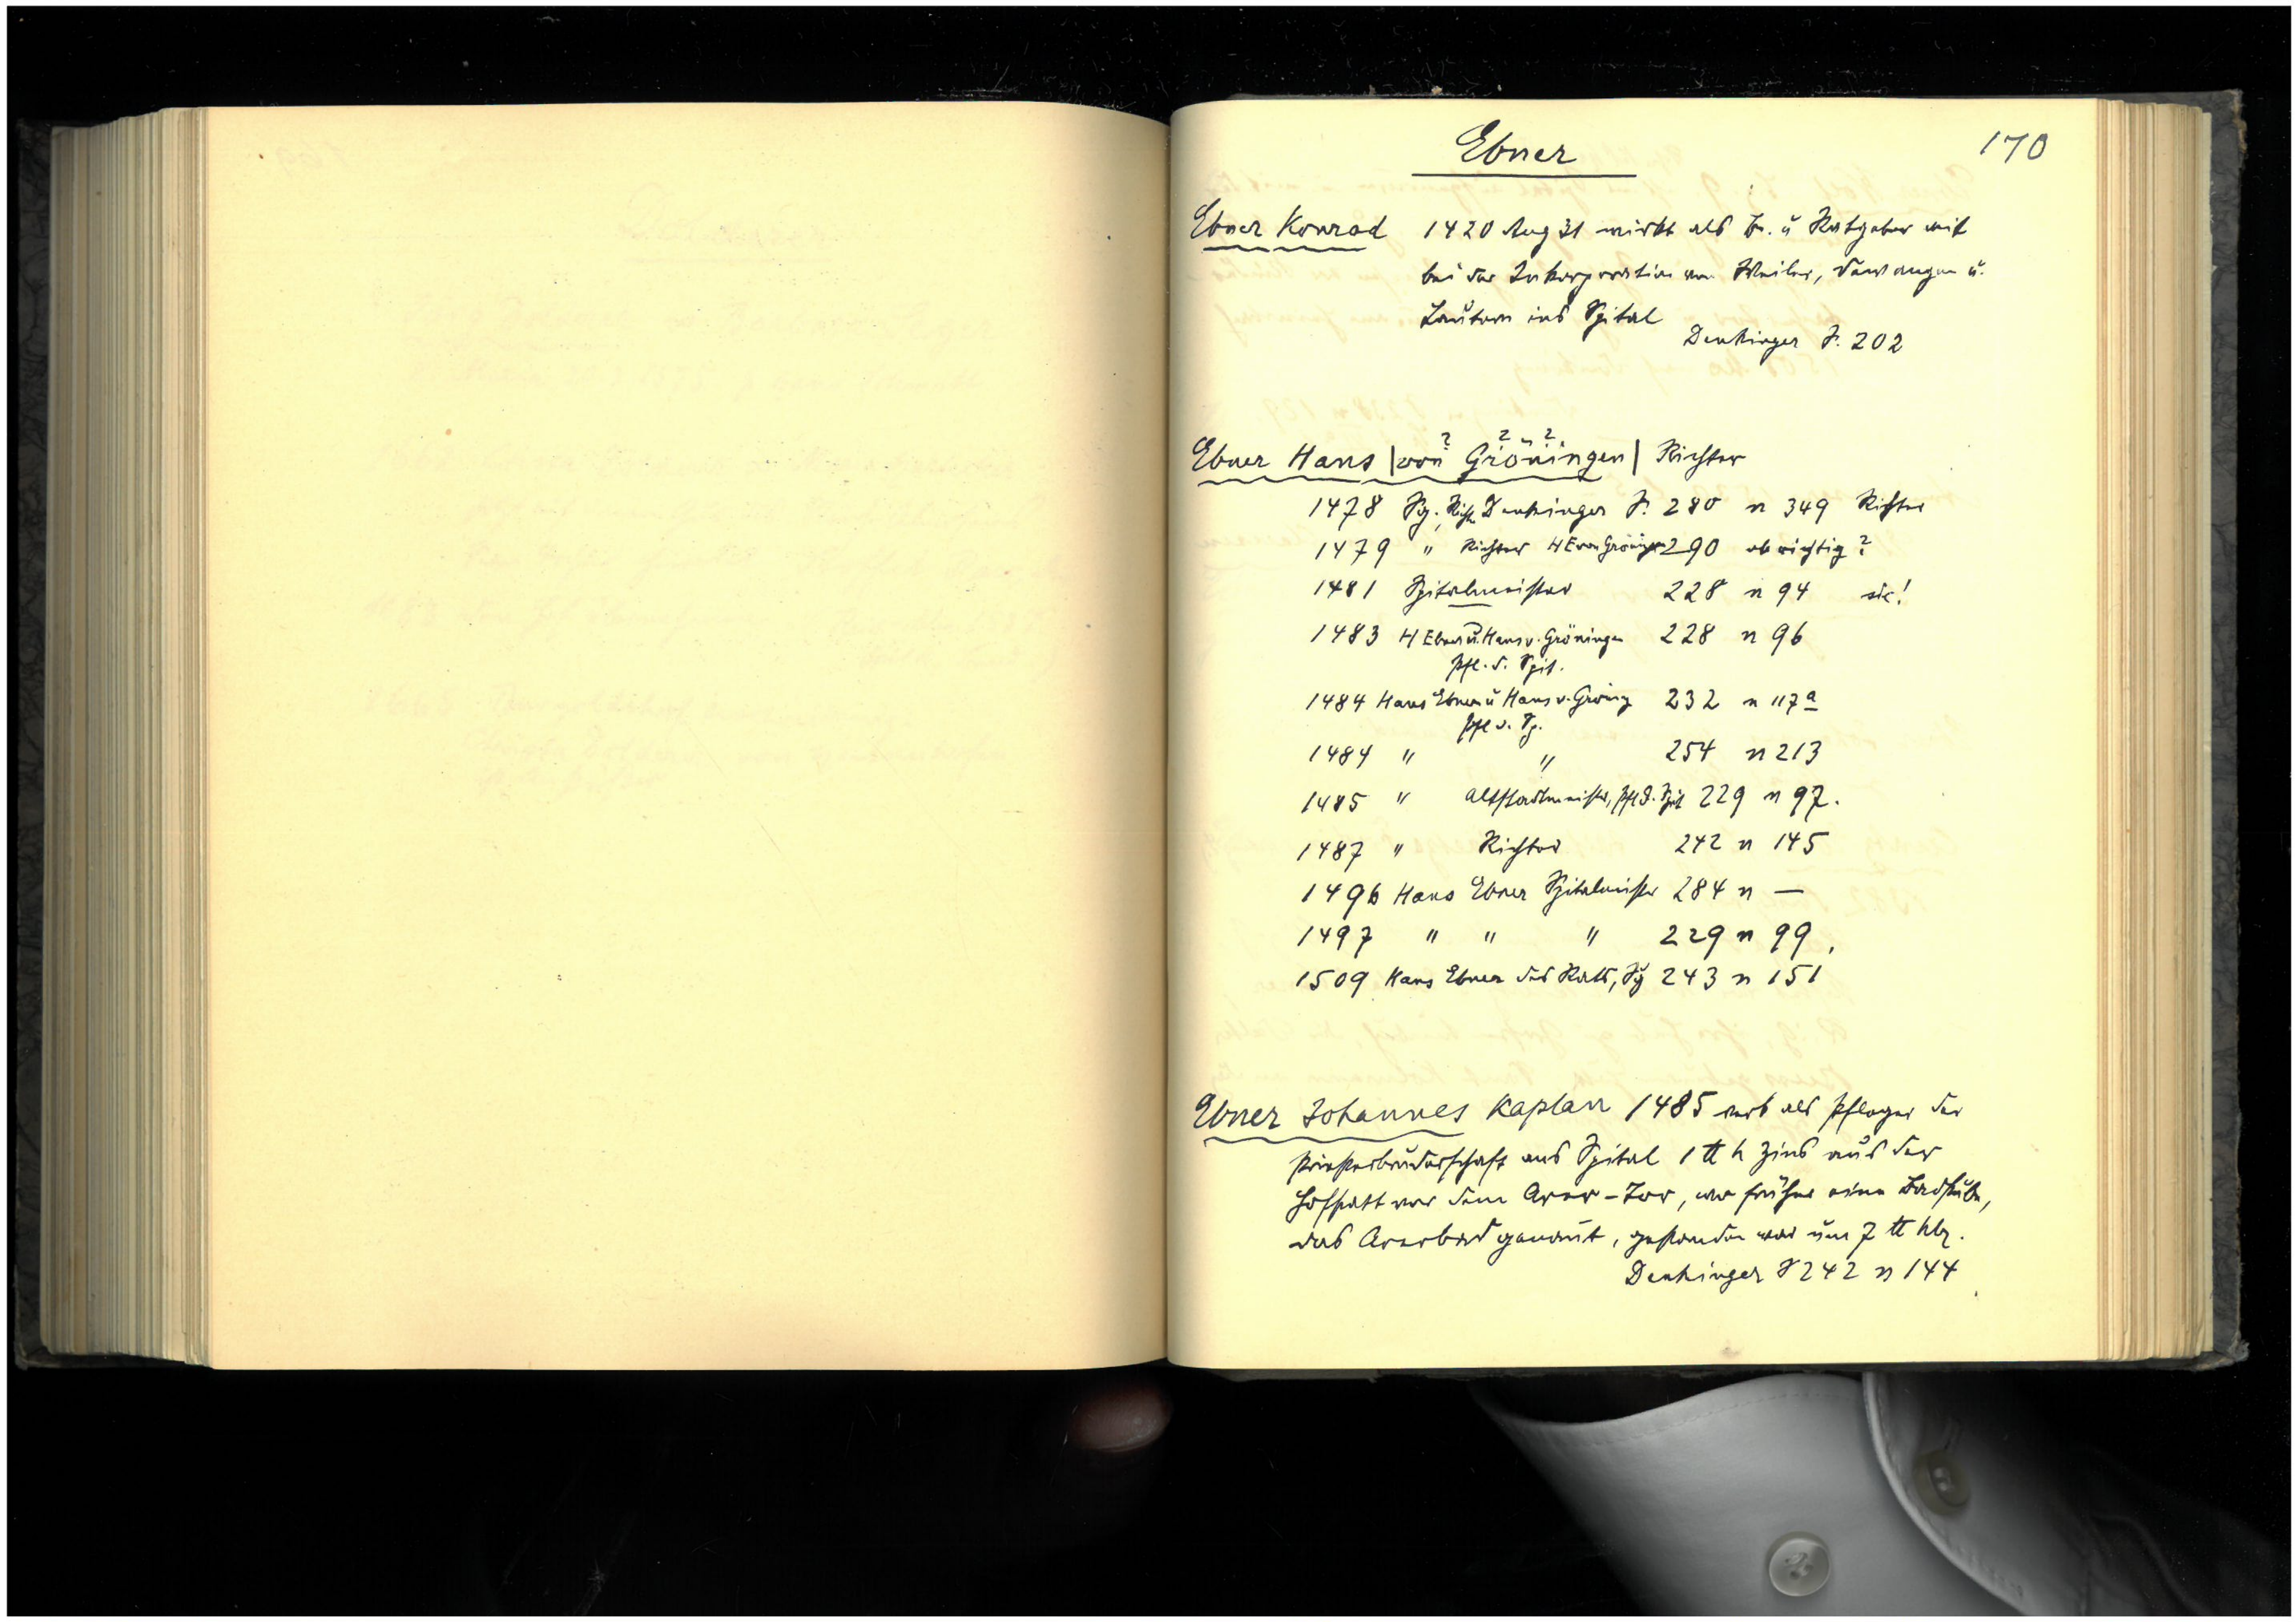 170
Ebner
Ebner Konrad 1420 Aug 31 wirkt als Br. u Ratgeber mit
bei der Inkorporation von Weiler, Dewangen u.
Lautern ins Spital
Denkinger S. 202
Ebner Hans |von Gröningen| Richter
1478 Sg., Richt. Denkinger S. 280 n 349 Richter
1479 " Richter H E von Gröningen 290 ob richtig?
1481 Spitalmeister 228 n 94 sic!
1483 H Ebner u. Hans v. Gröningen 228 n 96
Pfl. d. Spit.
1484 Hans Ebner u Hans v. Gröning 232 n 117 a
Pfl d. Sp.
1484 " " 254 n 213
1485 " Altstadtmeister, Pfl d. Spit 229 n 97.
1487 " Richter 242 n 145
1496 Hans Ebner Spitalmeister 284 n —
1497 " " " 229 n 99,
1509 Hans Ebner des Rats, Sg 243 n 151
Ebner Johannes Kaplan 1485 als Pfleger der
Priesterbruderschaft ans Spital 1 ℔ h Zins aus der
Hofstatt vor dem Arer-Tor, wo früher eine Badstube,
das Arerbad genannt, gestanden war um 7 ℔ hlr.
Denkinger S 242 n 144